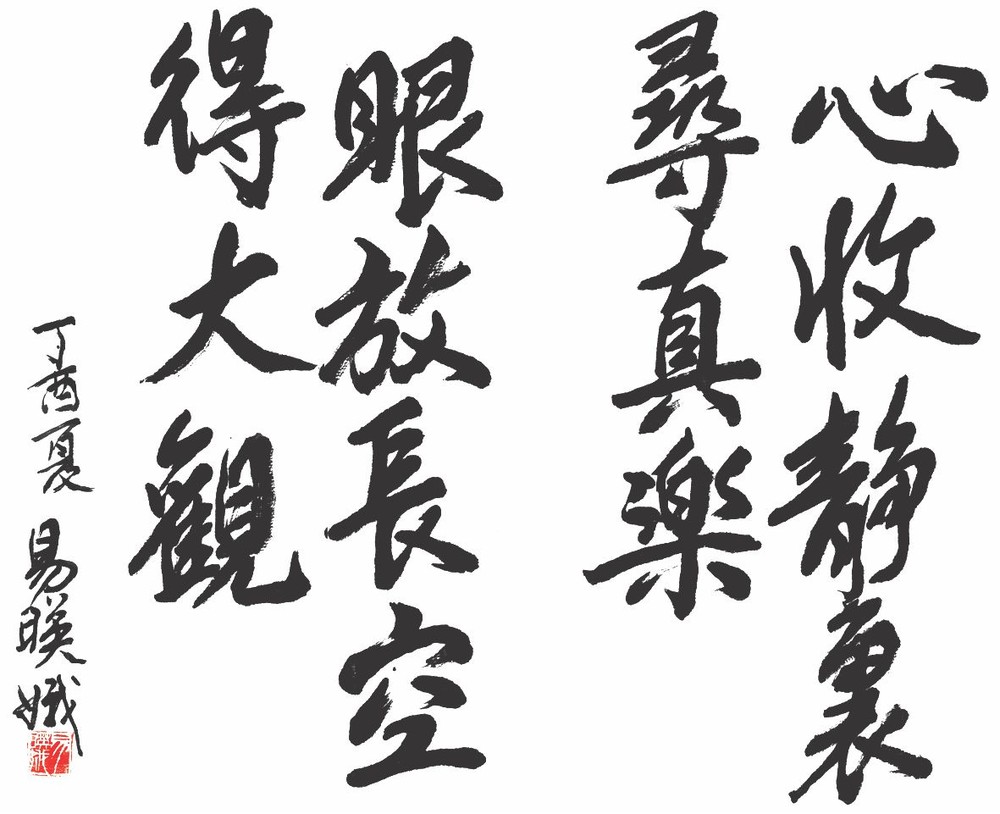 心收靜裏
尋真樂
眼放長空
得大觀
丁酉夏 易暎娥